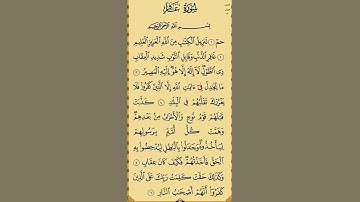 سُورَةُ غَافِرٍ
بِسْمِ اللَّهِ الرَّحْمَٰنِ الرَّحِيمِ
حمٓ ١ تَنزِيلُ ٱلْكِتَٰبِ مِنَ ٱللَّهِ ٱلْعَزِيزِ ٱلْعَلِيمِ ٢
غَافِرِ ٱلذَّنۢبِ وَقَابِلِ ٱلتَّوْبِ شَدِيدِ ٱلْعِقَابِ
ذِى ٱلطَّوْلِ لَآ إِلَٰهَ إِلَّا هُوَ إِلَيْهِ ٱلْمَصِيرُ ٣
مَا يُجَٰدِلُ فِىٓ ءَايَٰتِ ٱللَّهِ إِلَّا ٱلَّذِينَ كَفَرُوا۟ فَلَا
يَغْرُرْكَ تَقَلُّبُهُمْ فِى ٱلْبِلَٰدِ ٤ كَذَّبَتْ
قَبْلَهُمْ قَوْمُ نُوحٍ وَٱلْأَحْزَابُ مِنۢ بَعْدِهِمْ
وَهَمَّتْ كُلُّ أُمَّةٍۭ بِرَسُولِهِمْ
لِيَأْخُذُوهُ وَجَٰدَلُوا۟ بِٱلْبَٰطِلِ لِيُدْحِضُوا۟ بِهِ
ٱلْحَقَّ فَأَخَذْتُهُمْ فَكَيْفَ كَانَ عِقَابِ ٥
وَكَذَٰلِكَ حَقَّتْ كَلِمَتُ رَبِّكَ عَلَى ٱلَّذِينَ
كَفَرُوٓا۟ أَنَّهُمْ أَصْحَٰبُ ٱلنَّارِ ٦